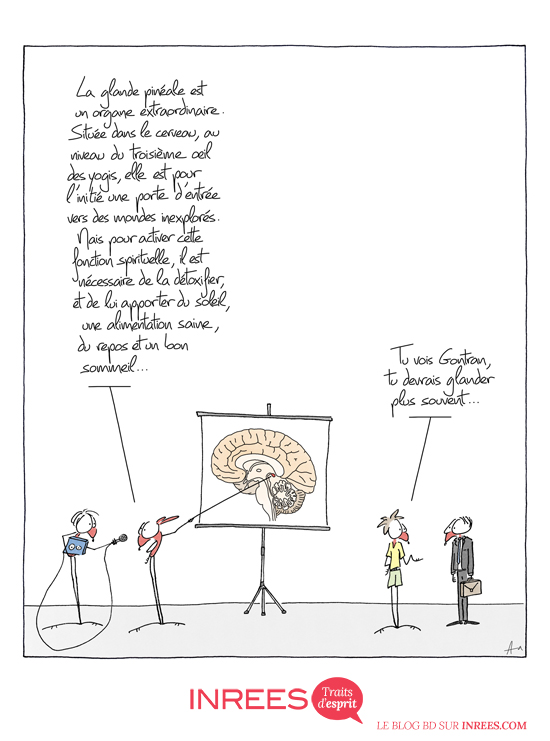 La glande pinéale est
un organe extraordinaire.
Située dans le cerveau, au
niveau du troisième oeil
des yogis, elle est pour
l'initié une porte d'entrée
vers des mondes inexplorés.
Mais pour activer cette
fonction spirituelle, il est
nécessaire de la détoxifier,
et de lui apporter du soleil,
une alimentation saine,
du repos et un bon
sommeil...
Tu vois Gontran,
tu devrais glander
plus souvent...
INREES
Traits
d'esprit
LE BLOG BD SUR INREES.COM